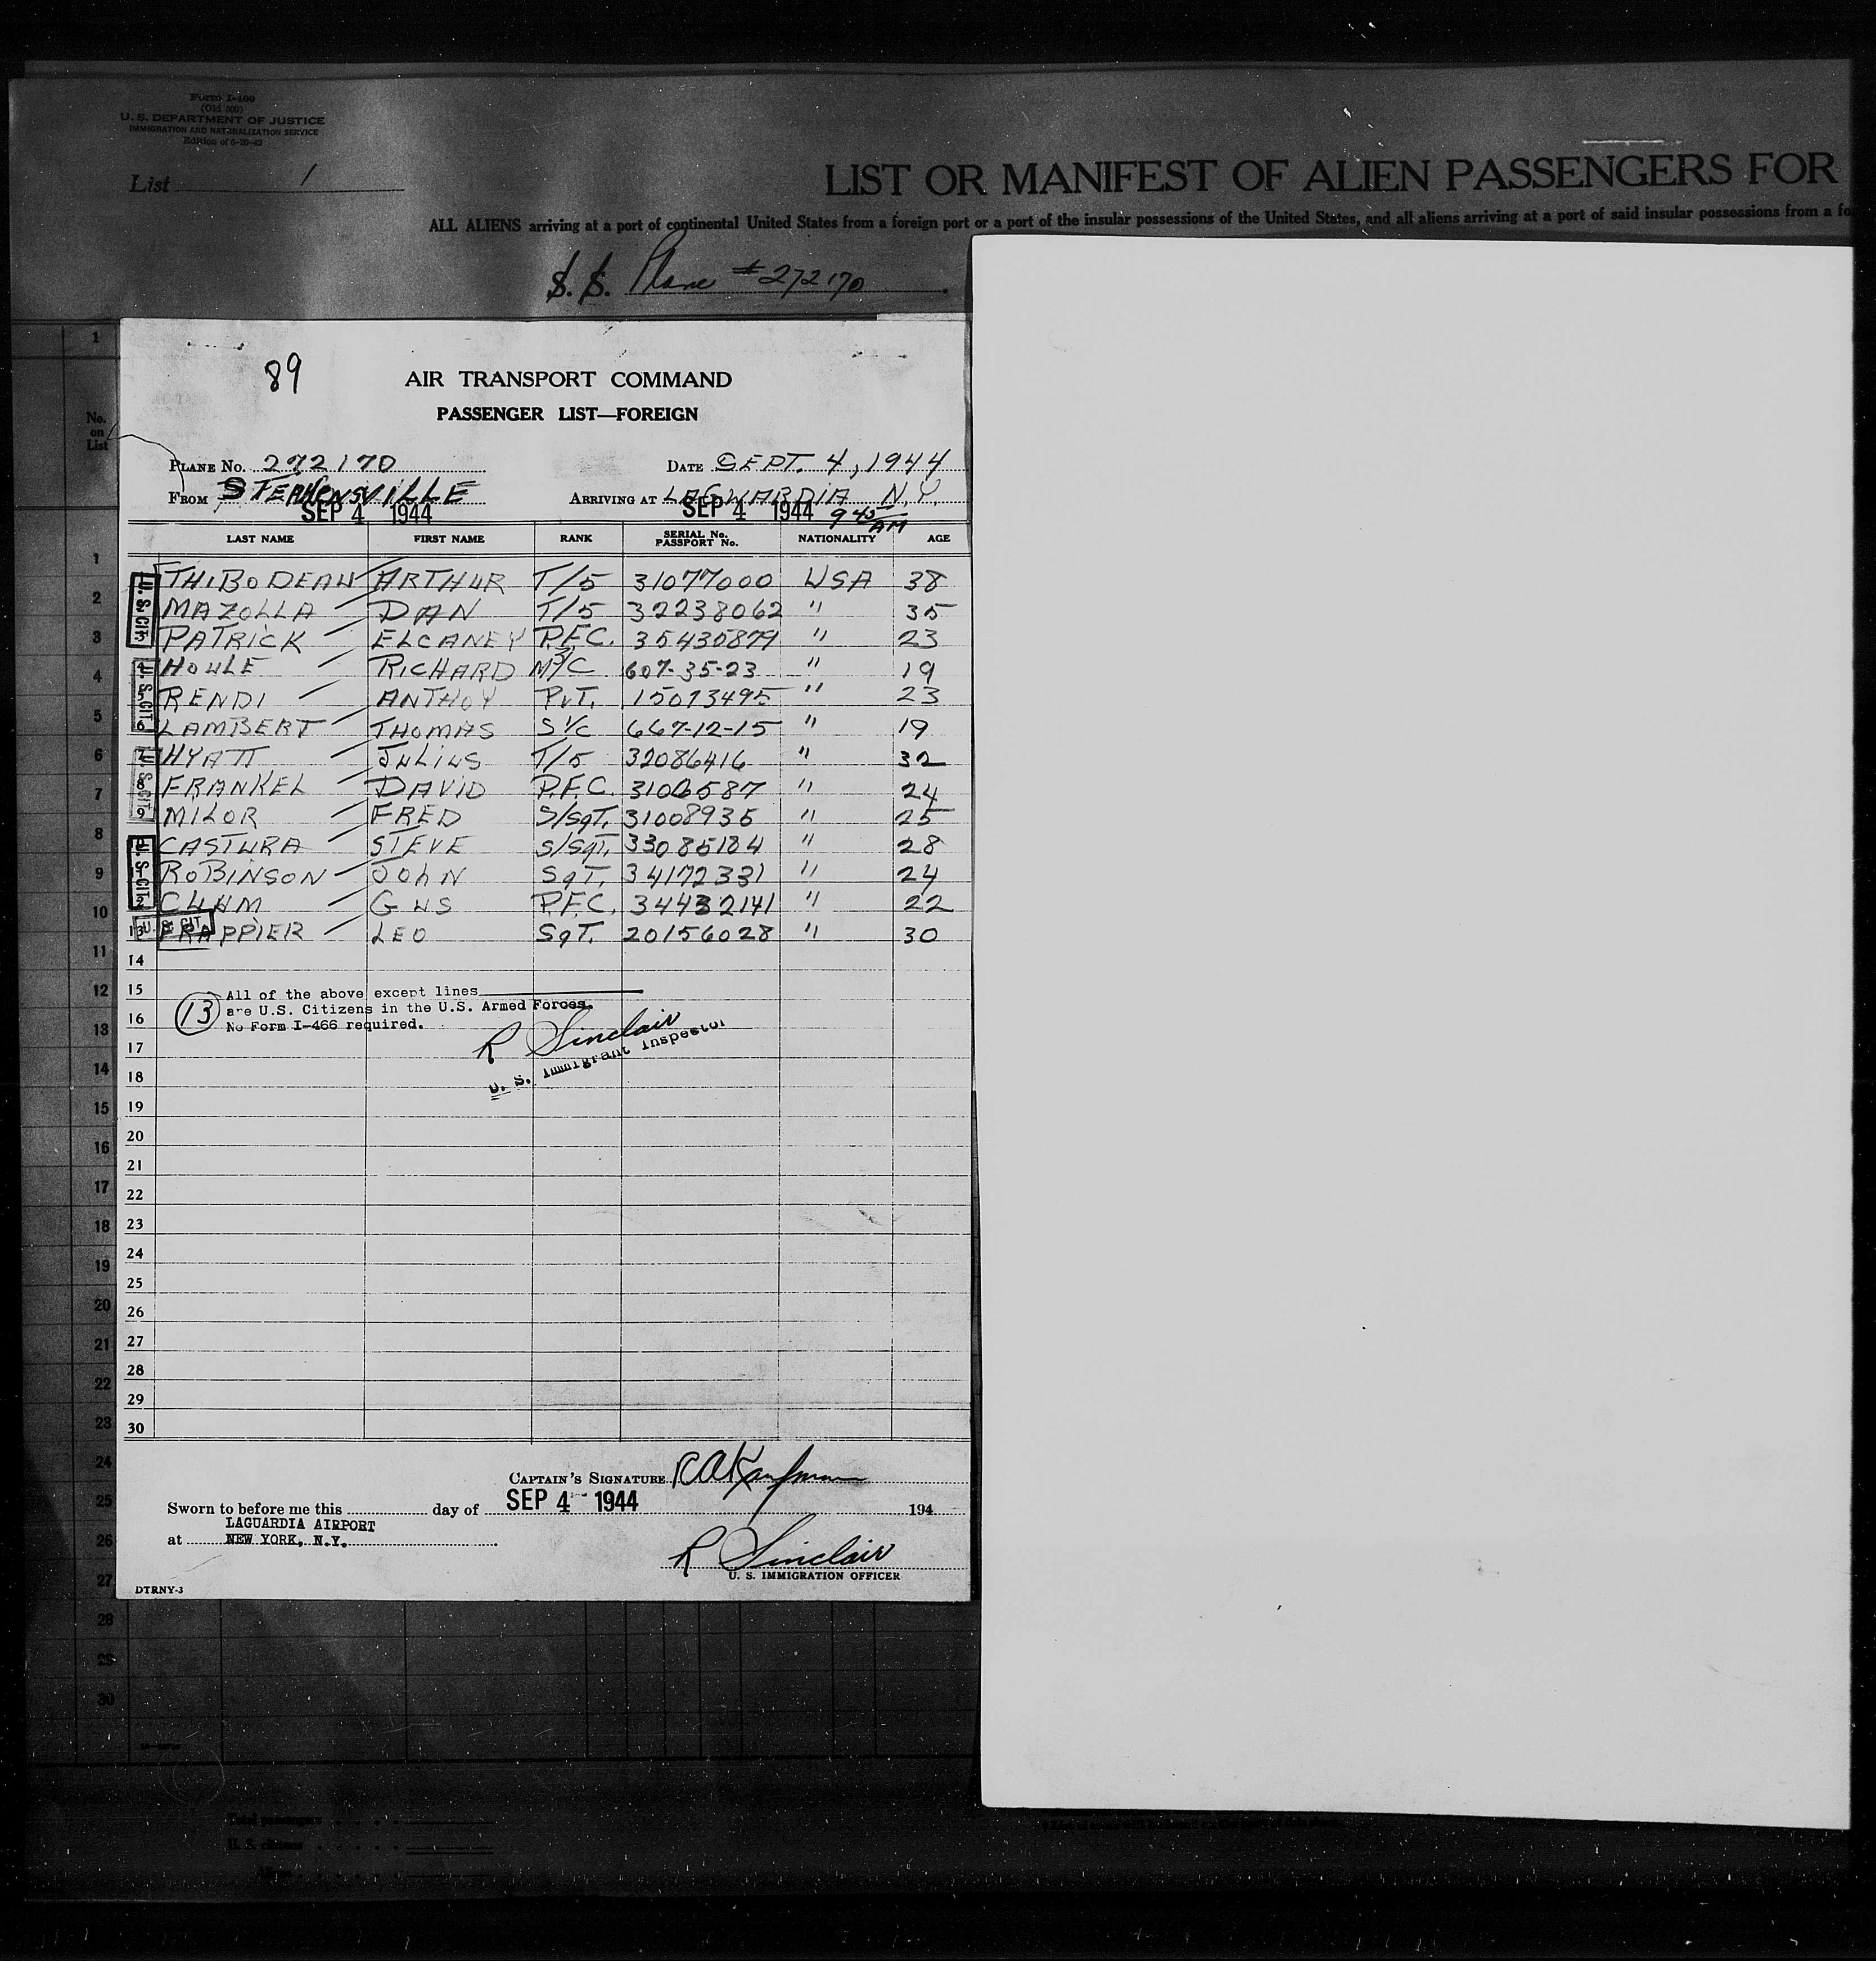 Form I-400
(Old 500)
U. S. DEPARTMENT OF JUSTICE
IMMIGRATION AND NATURALIZATION SERVICE
Edition of 6-20-42
List 1
LIST OR MANIFEST OF ALIEN PASSENGERS FOR
ALL ALIENS arriving at a port of continental United States from a foreign port or a port of the insular possessions of the United States, and all aliens arriving at a port of said insular possessions from a fo
S. S. Plane #272170
89
AIR TRANSPORT COMMAND
PASSENGER LIST—FOREIGN
PLANE No. 272170 DATE SEPT. 4, 1944
FROM STEPHENSVILLE ARRIVING AT LAGUARDIA N.Y.
SEP 4 1944 SEP 4 1944 9 45 AM
No. on List
LAST NAME FIRST NAME RANK SERIAL No. PASSPORT No. NATIONALITY AGE
THIBODEAU ARTHUR T/5 31077000 USA 38
MAZOLLA DAN T/5 32238062 " 35
PATRICK ELCANEY P.F.C. 35435879 " 23
HOULE RICHARD M 3/C 607-35-23 " 19
RENDI ANTHOY PvT. 15013495 " 23
LAMBERT THOMAS S 1/C 667-12-15 " 19
HYATT JULIUS T/5 32086416 " 32
FRANKEL DAVID P.F.C. 3106587 " 24
MILOR FRED S/SgT. 31008935 " 25
CASTURA STEVE S/SgT. 33085184 " 28
ROBINSON JOHN SgT. 34172331 " 24
CHUM GUS P.F.C. 34432141 " 22
13 FRAPPIER LEO SgT. 20156028 " 30
U. S. CIT.
U. S. CIT.
U. S. CIT.
U. S. CIT.
U. S. CIT.
14
15
16
17
18
19
20
21
22
23
24
25
26
27
28
29
30
13 All of the above except lines
are U.S. Citizens in the U.S. Armed Forces.
No Form I-466 required.
R Sinclair
U. S. Immigrant Inspector
CAPTAIN'S SIGNATURE R A Kaufman
Sworn to before me this day of SEP 4 1944 194
LAGUARDIA AIRPORT
at NEW YORK, N.Y.
R Sinclair
U. S. IMMIGRATION OFFICER
DTRNY-3
1
1
2
3
4
5
6
7
8
9
10
11
12
13
14
15
16
17
18
19
20
21
22
23
24
25
26
27
28
29
30
Total passengers
U. S. citizens
Aliens